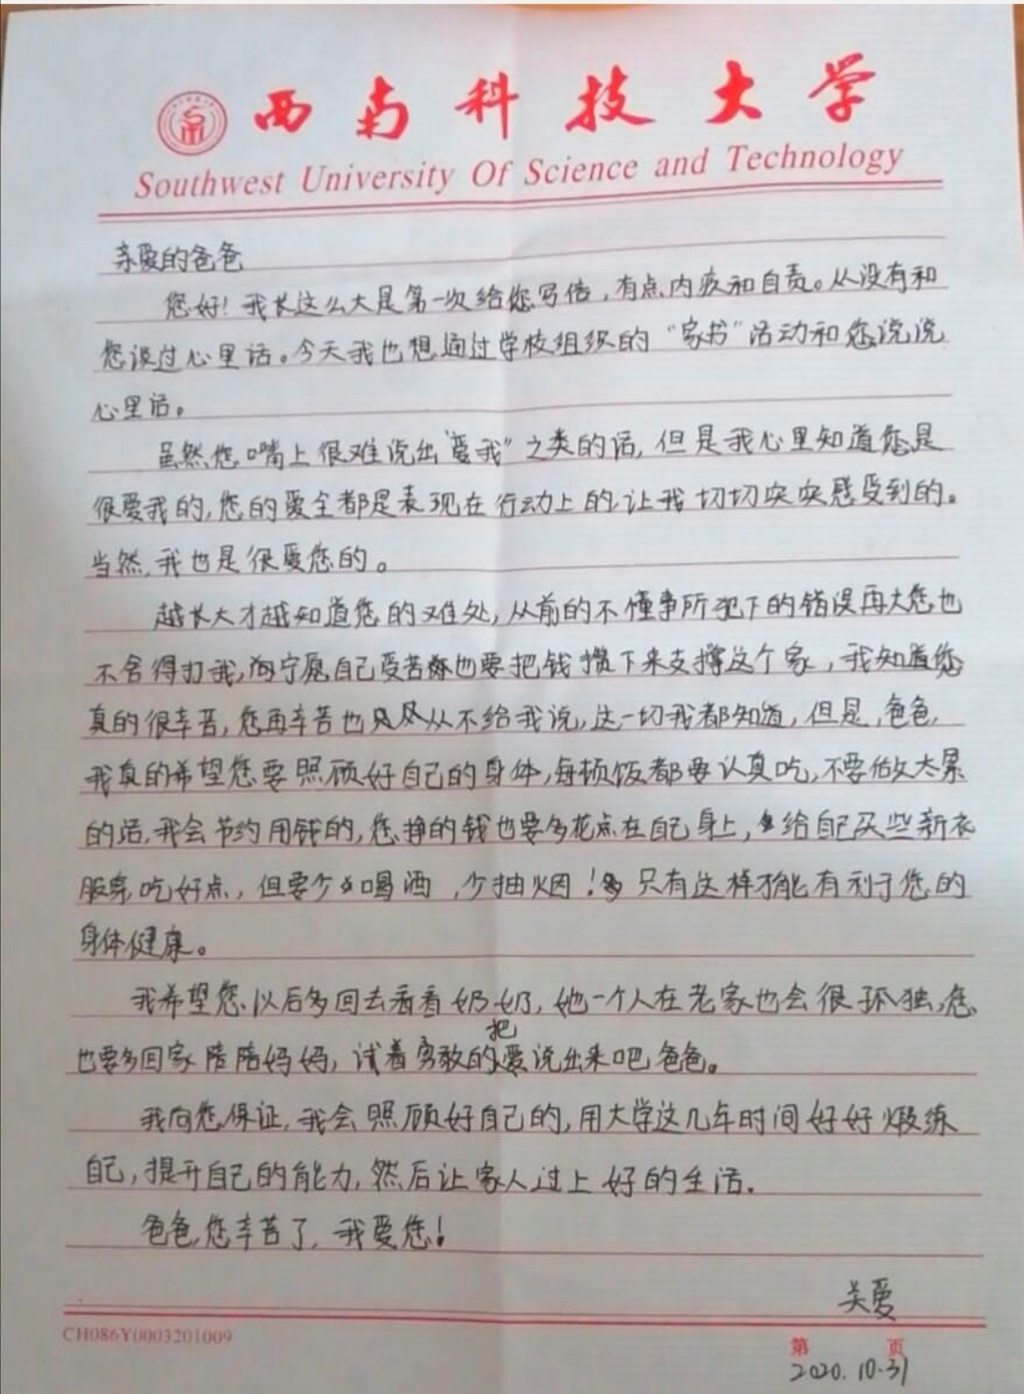 西南科技大学
Southwest University Of Science and Technology
亲爱的爸爸
您好！我长这么大是第一次给您写信，有点内疚和自责。从没有和
您谈过心里话。今天我也想通过学校组织的“家书”活动和您说说
心里话。
虽然您嘴上很难说出“爱我”之类的话，但是我心里知道您是
很爱我的，您的爱全都是表现在行动上的，让我切切实实感受到的。
当然，我也是很爱您的。
越长大才越知道您的难处，从前的不懂事所犯下的错误再大您也
不舍得打我，宁愿自己受苦也要把钱攒下来支撑这个家，我知道您
真的很辛苦，您再辛苦也从不给我说，这一切我都知道，但是，爸爸，
我真的希望您要照顾好自己的身体，每顿饭都要认真吃，不要做太累
的活，我会节约用钱的，您挣的钱也要多花点在自己身上，给自己买些新衣
服穿，吃好点，但要少喝酒，少抽烟！只有这样才能有利于您的
身体健康。
我希望您以后多回去看看奶奶，她一个人在老家也会很孤独，您
也要多回家陪陪妈妈，试着勇敢的把爱说出来吧爸爸。
我向您保证，我会照顾好自己的，用大学这几年时间好好煅练
自己，提升自己的能力，然后让家人过上好的生活.
爸爸，您辛苦了，我爱您！
关爱
CH086Y0003201009
第 页
2020.10.31